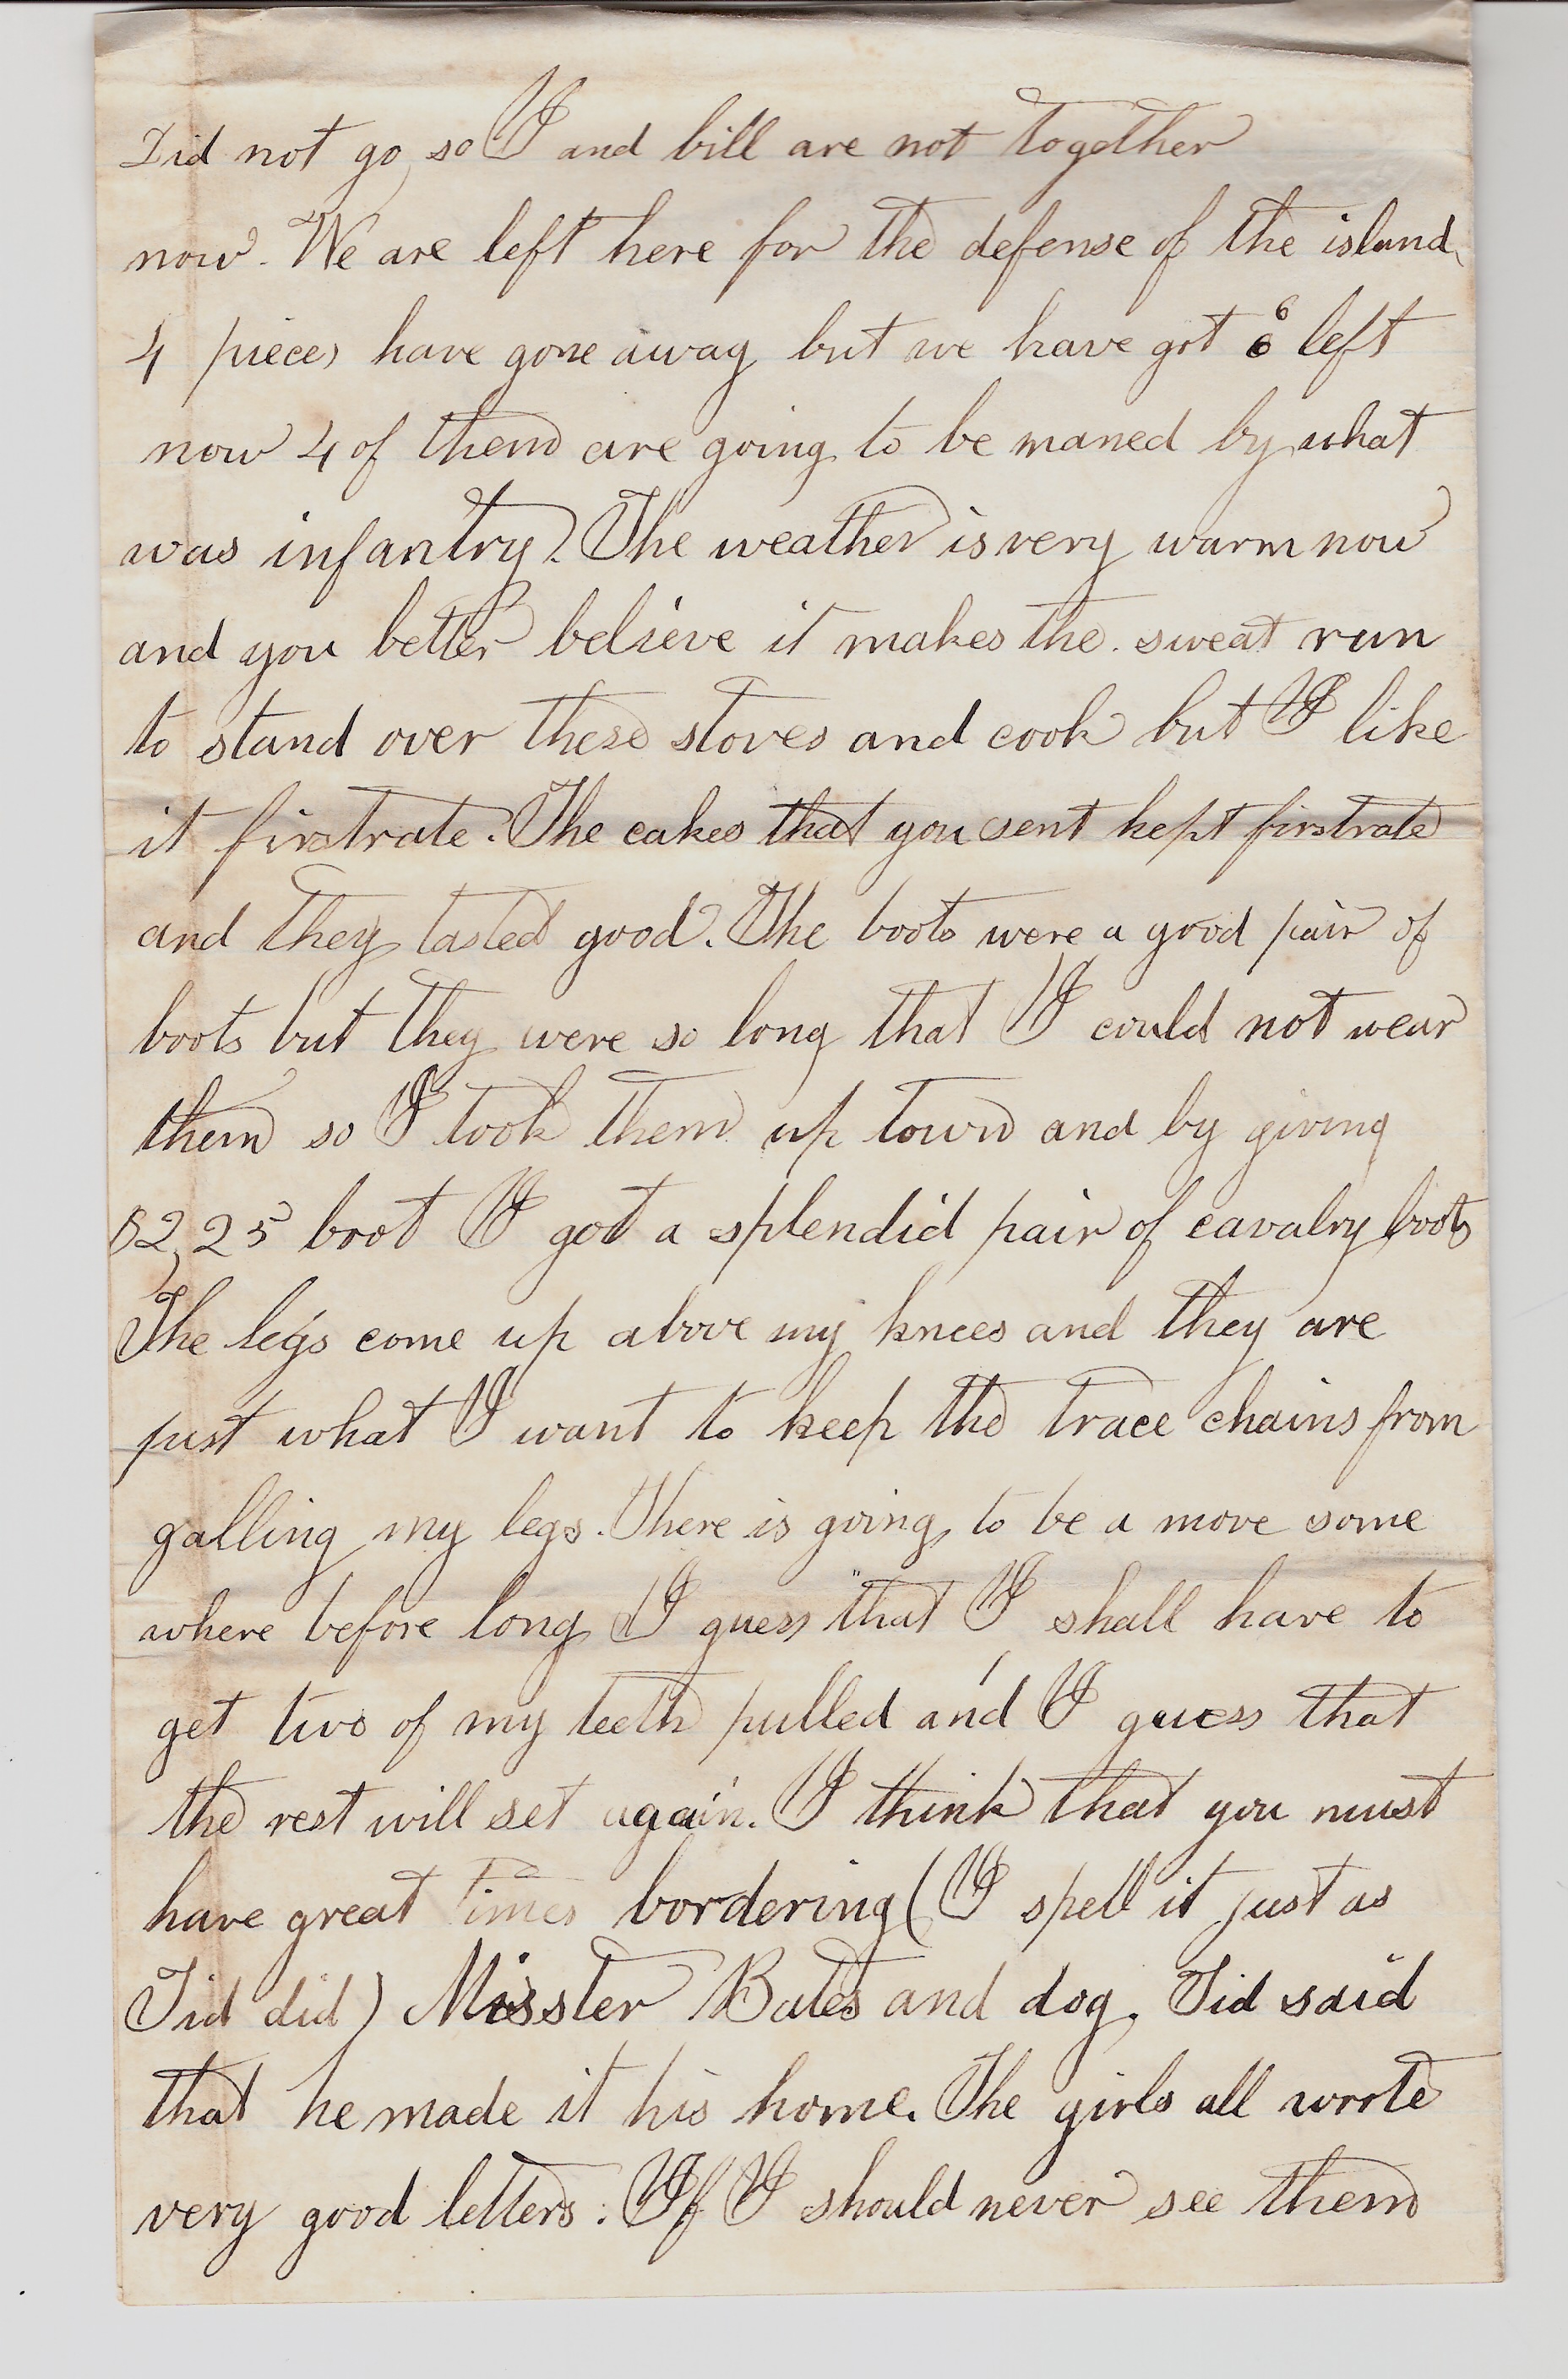 Did not go, so I and bill are not together
now. We are left here for the defense of the island
4 pieces have gone away but we have got 6 left
now 4 of them are going to be maned by what
was infantry. The weather is very warm now
and you better believe it makes the sweat run
to stand over these stoves and cook but I like
it firstrate. The cakes that you sent kept firstrate
and they tasted good. The boots were a good pair of
boots but they were so long that I could not wear
them so I took them up town and by giving
$2,25 boot I got a splendid pair of cavalry boots
The legs come up above my knees and they are
just what I want to keep the trace chains from
galling my legs. There is going to be a move some
where before long I guess that I shall have to
get two of my teeth pulled and I guess that
the rest will set again. I think that you must
have great times bordering (I spell it just as
Tid did) Misster Bates and dog. Tid said
that he made it his home. The girls all wrote
very good letters. If I should never see them